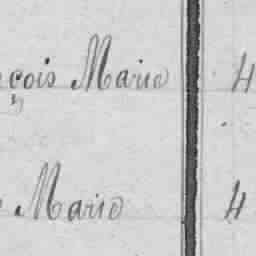 çois Marie 4
Marie 4